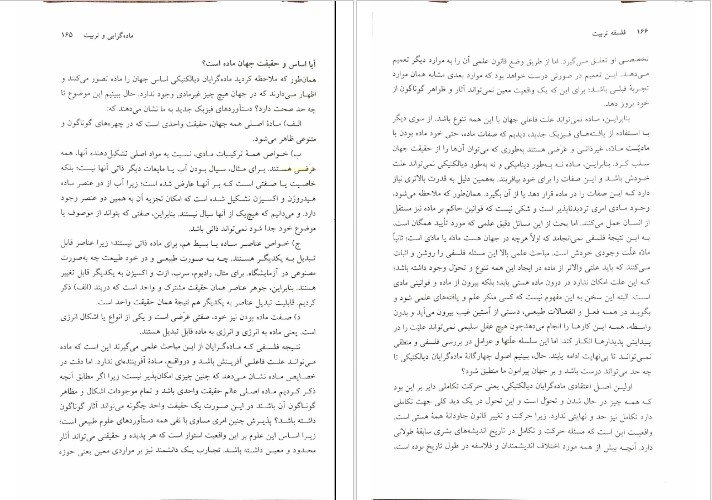 ماده‌گرایی و تربیت ۱۶۵
آیا اساس و حقیقت جهان ماده است؟
همان‌طور که ملاحظه کردید ماده‌گرایان دیالکتیکی اساس جهان را ماده تصور می‌کنند و
اظهار می‌دارند که در جهان هیچ چیز غیرمادی وجود ندارد. حال ببینیم این موضوع تا
چه حد صحت دارد؟ دستآوردهای فیزیک جدید به ما نشان می‌دهند که:
الف) مادهٔ اصلی همه جهان، حقیقت واحدی است که در چهره‌های گوناگون و
متنوعی ظاهر می‌شود.
ب) خواص همهٔ ترکیبات مادی، نسبت به مواد اصلی تشکیل‌دهنده آنها، همه
عرضی هستند. برای مثال، سیال بودن آب یا مایعات دیگر ذاتی آنها نیست؛ بلکه
خاصیت یا صفتی است که بر آنها عارض شده است؛ زیرا آب از دو عنصر ساده
هیدروژن و اکسیژن تشکیل شده است که امکان تجزیه آن به همین دو عنصر وجود
دارد. و می‌دانیم که هیچ‌یک از آنها سیال نیستند. بنابراین، صفتی که بتواند از موصوف یا
موضوع خود جدا شود نمی‌تواند ذاتی باشد.
ج) خواص عناصر ساده یا بسیط هم، برای ماده ذاتی نیستند؛ زیرا عناصر قابل
تبدیل به یکدیگر هستند. چه به صورت طبیعی و در خود طبیعت چه به‌صورت
مصنوعی در آزمایشگاه. برای مثال، رادیوم، سرب، ازت و اکسیژن به یکدیگر قابل تغییر
هستند. بنابراین، جوهر عناصر همان حقیقت مشترک و واحد است که دربند (الف) ذکر
کردیم. قابلیت تبدیل عناصر به یکدیگر هم نتیجهٔ همان حقیقت واحد است.
د) صفت ماده بودن نیز خود، صفتی عرضی است و یکی از انواع یا اشکال انرژی
است. یعنی ماده به انرژی و انرژی به ماده قابل تبدیل هستند.
نتیجه فلسفی که ماده‌گرایان از این مباحث علمی می‌گیرند این است که ماده
می‌تواند علت فاعلی آفرینش باشد و درواقع، مادهٔ آفریننده‌ای ندارد. اما دقت در
خصایص ماده نشان می‌دهد که چنین چیزی امکان‌پذیر نیست؛ زیرا اگر مطابق آنچه
ذکر کردیم ماده اصلی عالم حقیقت واحدی باشد و تمام موجودات اشکال و مظاهر
گوناگون آن باشند در این صورت یک حقیقت واحد چگونه می‌تواند آثار گوناگون
داشته باشد؟ پذیرش چنین امری مساوی با نفی همه دستآوردهای علوم طبیعی است؛
زیرا اساس این علوم بر این واقعیت استوار است که هر پدیده و حقیقتی می‌تواند آثار
محدود و معین داشته باشد. تجارب یک دانشمند نیز بر مواردی معین یعنی حوزه
۱۶۶ فلسفه تربیت
تخصصی او تعلق می‌گیرد. اما از طریق وضع قانون علمی آن را به موارد دیگر تعمیم
می‌دهد. این تعمیم در صورتی درست خواهد بود که موارد بعدی مشابه همان موارد
تجربهٔ قبلی باشد؛ برای این که یک واقعیت معین نمی‌تواند آثار و ظواهر گوناگون از
خود بروز دهد.
بنابراین، ماده نمی‌تواند علت فاعلی جهان با این همه تنوع باشد. از سوی دیگر
با استفاده از یافته‌های فیزیک جدید، دیدیم که صفات ماده، حتی خود ماده بودن یا
مادیّت ماده، غیرذاتی و عرضی هستند به‌طوری که می‌توان آن‌ها را از حقیقت جهان
سلب کرد. بنابراین، ماده نه به‌طور دینامیکی و نه به‌طور دیالکتیکی نمی‌تواند علت
خودش باشد و این صفات را برای خود بیافریند. به‌همین دلیل به قدرت بالاتری نیاز
دارد کـه این صفات را در ماده قرار دهد یا از آن بگیرد. همان‌طور که ملاحظه می‌شود،
وجـود مـادی امری تردیدناپذیر است و شکی نیست که قوانین حاکم بر ماده نیز مستقل
از انسان عمل می‌کنند. اما بحث از این مسائل دقیق علمی که مورد تأیید همگان است،
به این نتیجهٔ فلسفی نمی‌انجامد که اولاً هرچه در جهان هست ماده یا مادی است؛ ثانیاً
مادّه علّت وجودی خودش است. مباحث علمی بالا این مسئله فلسفی را روشن و اثبات
می‌کنند که باید علتی والاتر از ماده در ایجاد این همه تنوع و تحوّل وجود داشته باشد؛
که این علت امکان ندارد در درون ماده هستی یابد؛ بلکه بیرون از ماده و قوانینی مادی
است. البته این سخن به این مفهوم نیست که کسی منکر علم و یافته‌های علمی شود و
بگوید در همه فعل و انفعالات طبیعی، دستی از آستین غیب بیرون می‌آید و بدون
واسطه، همه این کارها را انجام می‌دهدچون هیچ عقل سلیمی نمی‌تواند علیّت را در
پیدایش پدیدارها انکار کند. اما این سلسله علّتها و عوامل در بررسی فلسفی و منطقی
نمی‌تواند تا بی‌نهایت ادامه یابند. حال، ببینیم اصول چهارگانهٔ ماده‌گرایان دیالکتیکی تا
چه حد می‌تواند درست باشد و بر جهان پیرامون ما منطبق شود؟
اولین اصل اعتقادی ماده‌گرایان دیالکتیکی، یعنی حرکت تکاملی دایر بر این بود
که همه چیز در حال شدن و تحوّل است و این تحول در یک دید کلی جهت تکاملی
دارد تکامل نیز حد و نهایتی ندارد. زیرا حرکت و تغییر قانون جاودانهٔ همهٔ هستی است.
واقعیت این است که مسئله حرکت و تکامل در تاریخ اندیشه‌های بشری سابقهٔ طولانی
دارد. آنچـه بیش از همه مورد اختلاف اندیشمندان و فلاسفه در طول تاریخ بوده است،